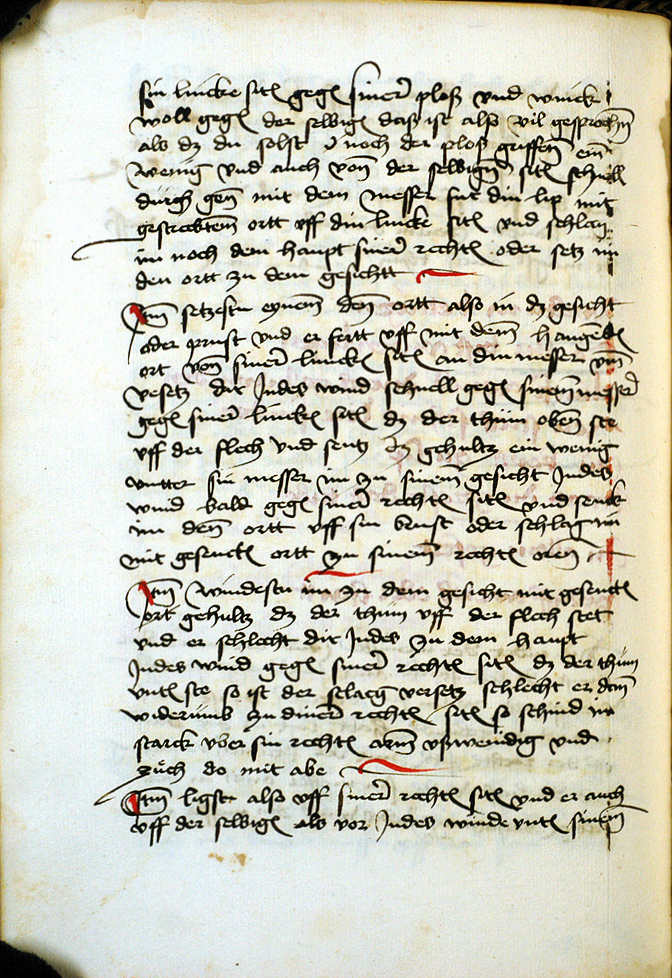 sin lincke sit gegen siner ploß vnd winck
woll gegen der selbigen daß ist also vil gesprochen
als dz du solst noch der ploß griffen ein
wenig vnd auch von der selbigen sitten schnell
durch gen mit dem messer fur din lip mit
gestracktem ortt vff din lincke sitt vnd schlag
im noch dem haupt siner rechten oder setz im
den ortt zu dem gesichtt
Jtm setzestu eynem den ortt also in dz gesicht
oder prust vnd er fertt vff mit dem hangenden
ort von siner lincken sitten an din messer vnd
vesetz dir Jndes wind schnell gegen sinem messer
gegen siner lincken sitten dz der thum oben ste
vff der flech vnd senck dz gehultz ein wenig
vntter sin messer im zu sinem gesicht Jndes
wind bald gegen siner rechten sitten vnd senck
im den ortt vff sin brust oder schlag im
mit gesenckten ortt zu sinem rechten oren
Jtm windestu im zu dem gesicht mit gesenckten
ort gehultz dz der thum vff der flech stet
vnd er schlecht dir Jndes zu dem haupt
Jndes wind gegen siner rechten sitten dz der thum
vnten ste so ist der schlag versetz schlecht er dann
widerumb zu diner rechten sitten so schind im
starck vber sin rechten arm vßwendig vnd
züch do mit abe
Jtm ligstu also vff siner rechten sitten vnd er auch
vff der selbigen als vor Jndes winde vnten sinem